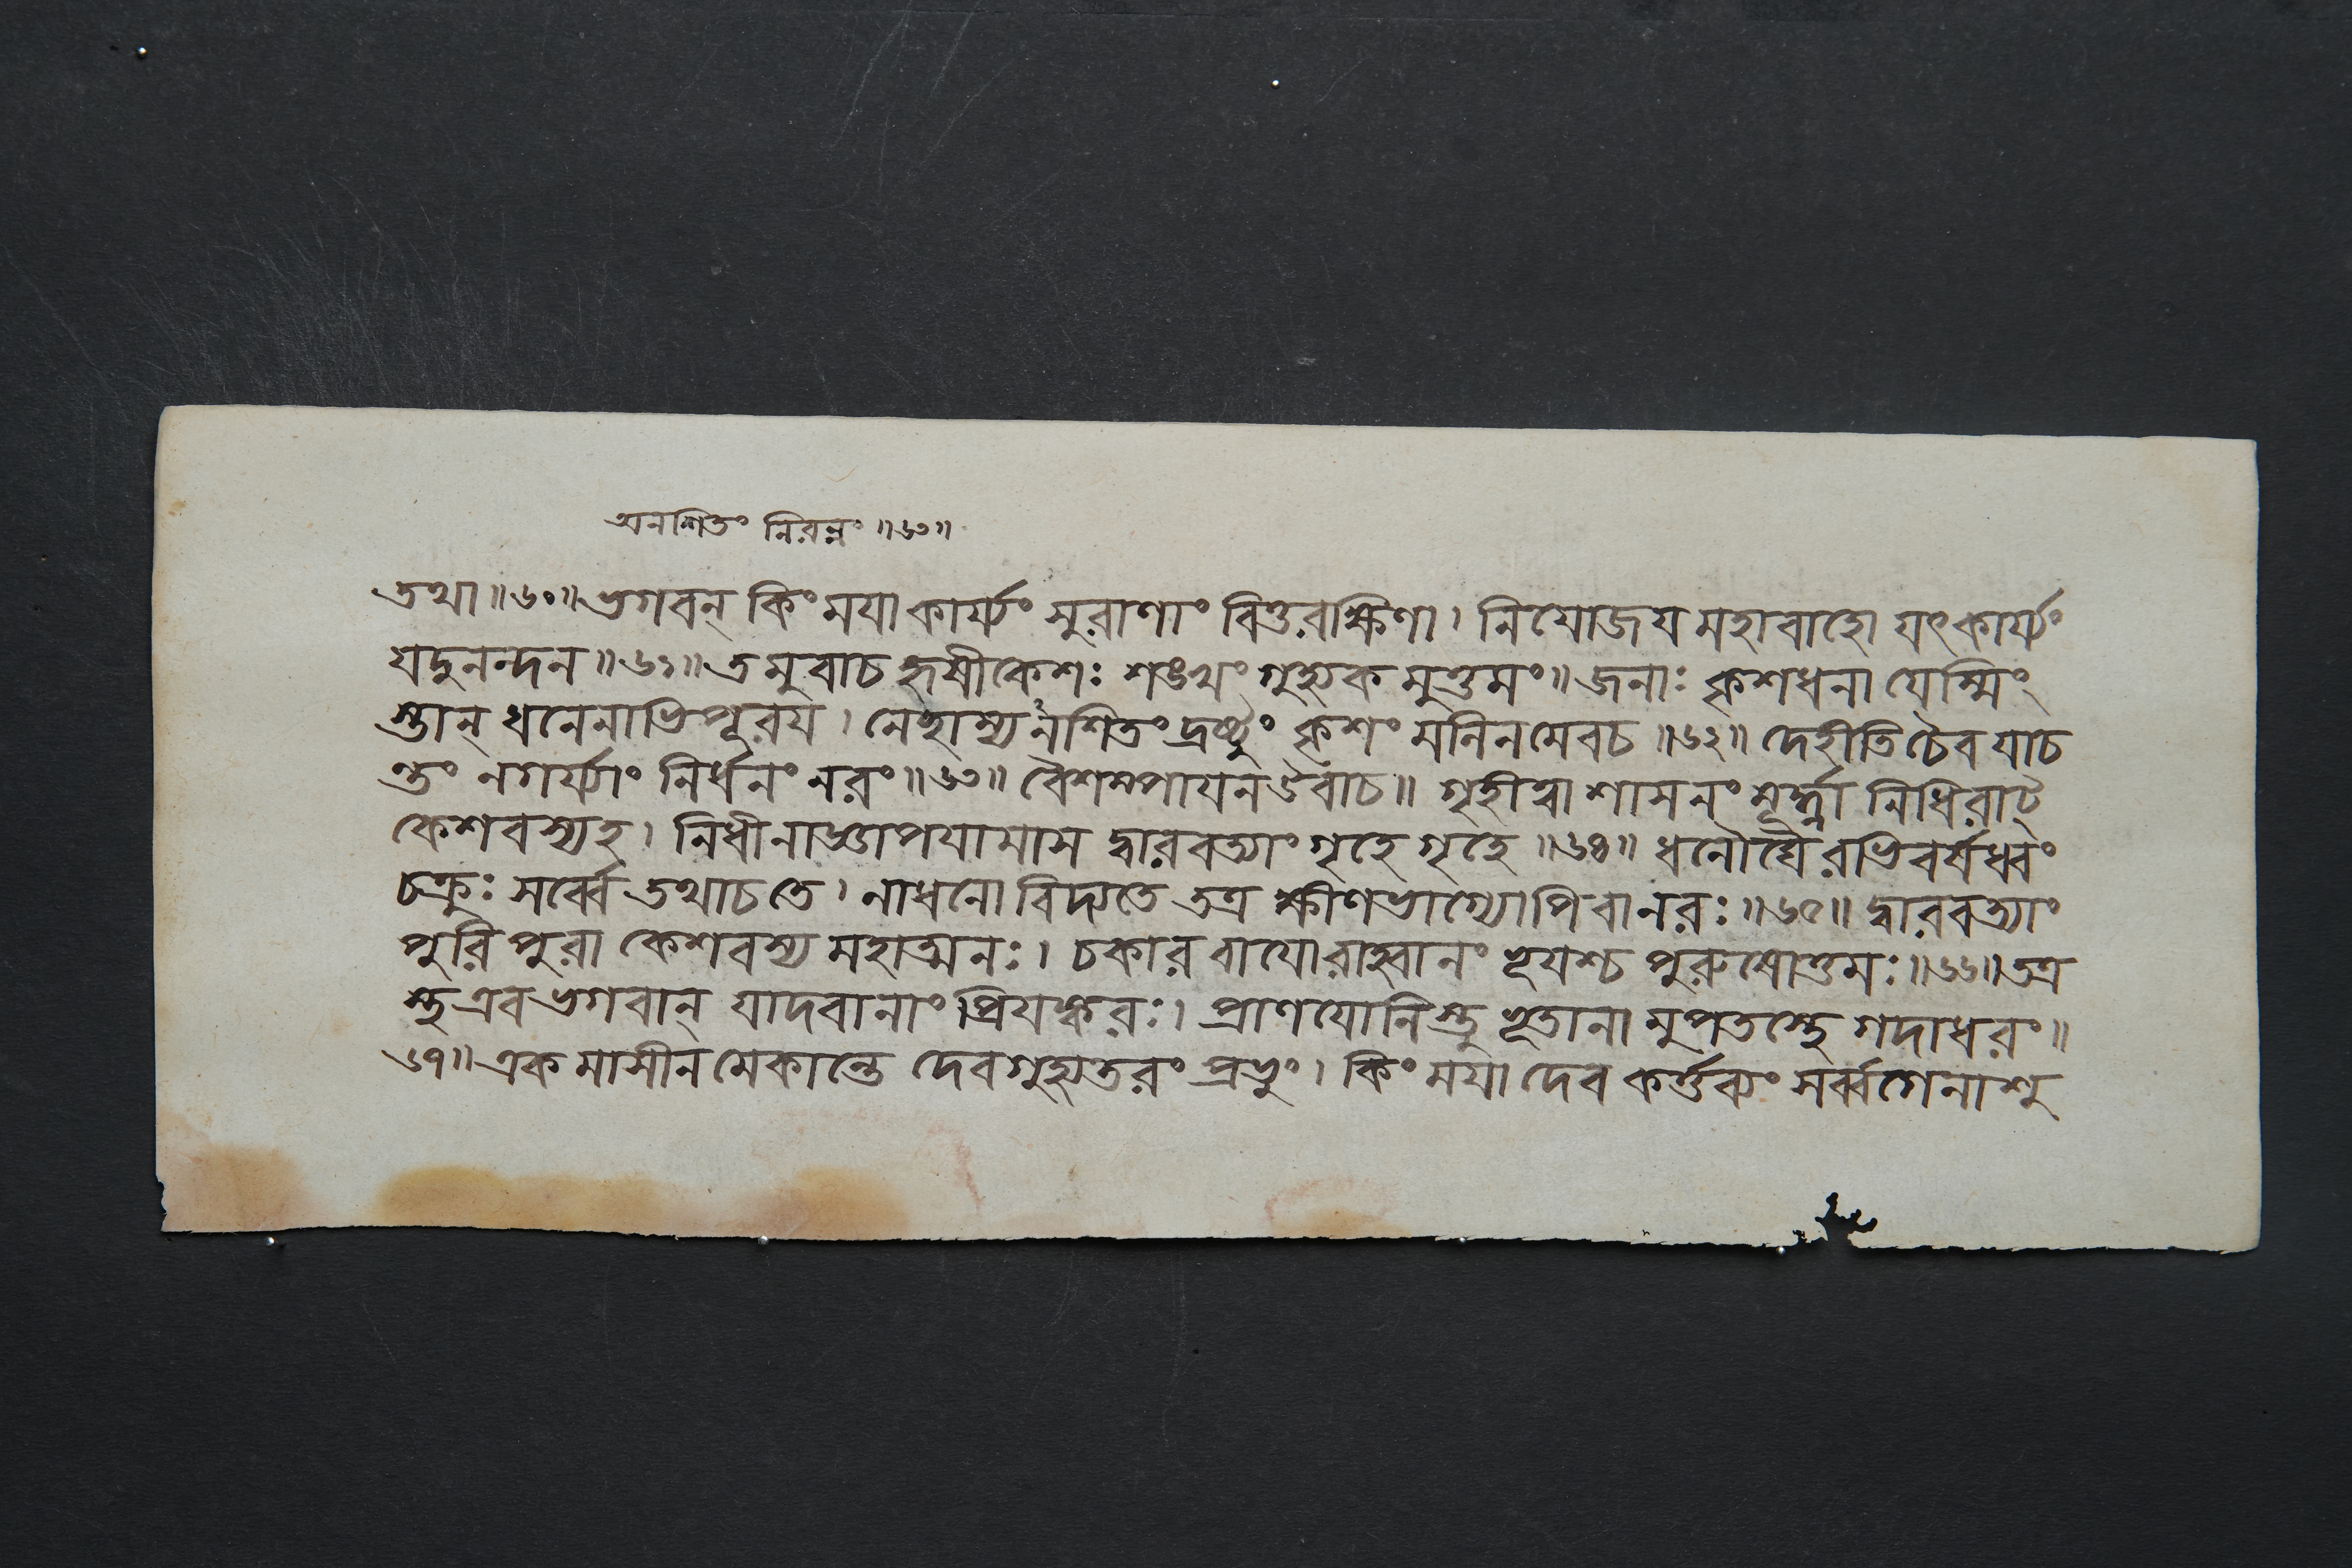 অনশিতং নিরন্নং ॥৬৩॥
তথা ॥৬০॥ ভগবন্ কিং ময়া কার্য্যং সুরাণাং বিত্তরক্ষিণা। নিযোজয় মহাবাহো যৎকার্য্যং
যদুনন্দন ॥৬১॥ তমুবাচ হৃষীকেশঃ শঙ্খং গুহ্যকমুত্তমং॥ জনাঃ কৃশধনা যেস্মিং
স্তান্ ধনেনাভিপূরয়। নেহাম্যনশিতং দ্রষ্টুং কৃশং মলিনমেবচ ॥৬২॥ দেহীতি চৈব যাচ
ন্তং নগর্য্যাং নির্ধনং নরং॥৬৩॥ বৈশম্পায়ন উবাচ॥ গৃহীত্বা শাসনং মূর্দ্ধ্না নিধিরাট্
কেশবস্যহ। নিধীনাজ্ঞাপয়ামাস দ্বারবত্যাং গৃহে গৃহে ॥৬৪॥ ধনৌঘৈরভিবর্ষধ্বং
চক্রুঃ সর্ব্বে তথাচ তে। নাধনো বিদ্যতে তত্র ক্ষীণভাগ্যোপিবানরঃ॥৬৫॥ দ্বারবত্যাং
পুরি পুরা কেশবস্য মহাত্মনঃ। চকার বায়োরাহ্বানং ভূয়শ্চ পুরুষোত্তমঃ॥৬৬॥ তত্র
স্থ এব ভগবান্ যাদবানাং প্রিয়ঙ্করঃ। প্রাণযোনিস্তু ভূতানামুপতস্থে গদাধরং॥
৬৭॥ একমাসীনমেকান্তে দেবগুহ্যতরং প্রভুং। কিং ময়া দেব কর্ত্তব্যং সর্ব্বগেনাশু